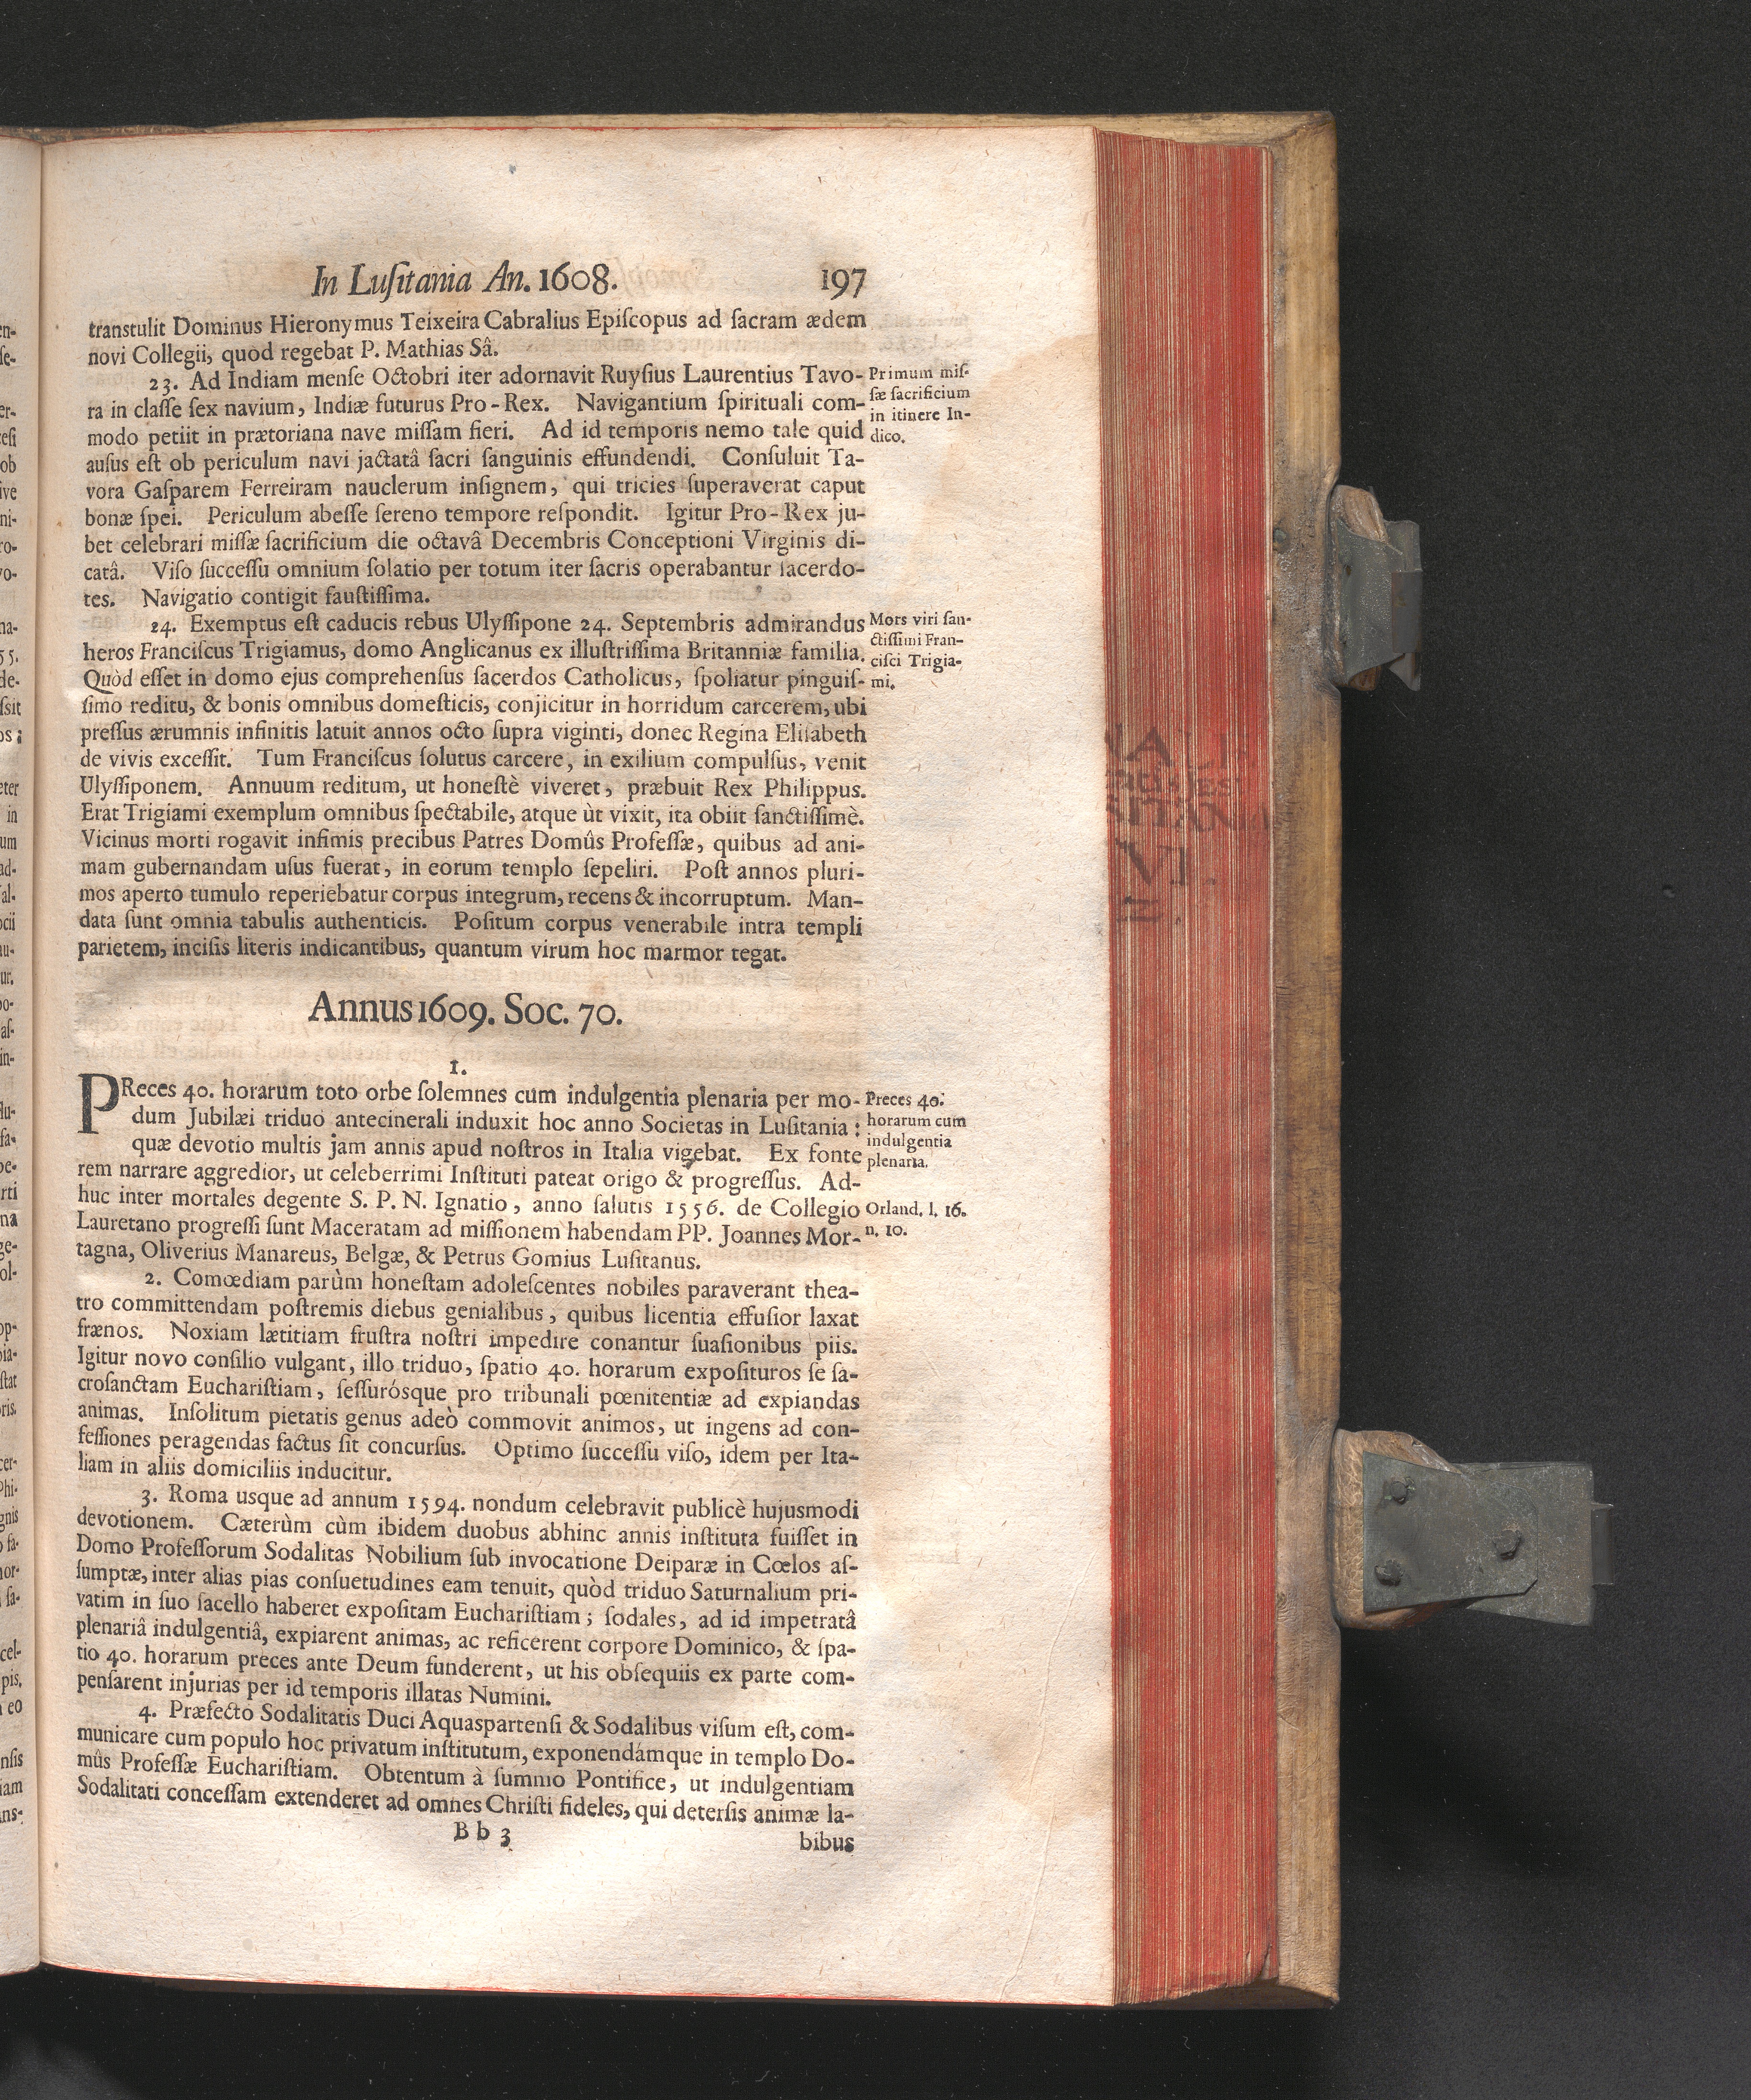 In Luſitania An. 1608. 197
transtulit Dominus Hieronymus Teixeira Cabralius Epiſcopus ad ſacram ædem
novi Collegii, quod regebat P. Mathias Sâ.
23. Ad Indiam menſe Octobri iter adornavit Ruyſius Laurentius Tavo-
ra in claſſe ſex navium, Indiæ futurus Pro-Rex. Navigantium ſpirituali com-
modo petiit in prætoriana nave miſſam fieri. Ad id temporis nemo tale quid
auſus eſt ob periculum navi jactatâ ſacri ſanguinis effundendi. Conſuluit Ta-
vora Gaſparem Ferreiram nauclerum inſignem, qui tricies ſuperaverat caput
bonæ ſpei. Periculum abeſſe ſereno tempore reſpondit. Igitur Pro-Rex ju-
bet celebrari miſſæ ſacrificium die octavâ Decembris Conceptioni Virginis di-
catâ. Viſo ſucceſſu omnium ſolatio per totum iter ſacris operabantur ſacerdo-
tes. Navigatio contigit fauſtiſſima.
Primum miſ-
ſæ ſacrificium
in itinere In-
dico.
24. Exemptus eſt caducis rebus Ulyſſipone 24. Septembris admirandus
heros Franciſcus Trigiamus, domo Anglicanus ex illuſtriſſima Britanniæ familia.
Quòd eſſet in domo ejus comprehenſus ſacerdos Catholicus, ſpoliatur pinguiſ-
ſimo reditu, & bonis omnibus domeſticis, conjicitur in horridum carcerem, ubi
preſſus ærumnis infinitis latuit annos octo ſupra viginti, donec Regina Eliſabeth
de vivis exceſſit. Tum Franciſcus ſolutus carcere, in exilium compulſus, venit
Ulyſſiponem. Annuum reditum, ut honeſtè viveret, præbuit Rex Philippus.
Erat Trigiami exemplum omnibus ſpectabile, atque ùt vixit, ita obiit ſanctiſſimè.
Vicinus morti rogavit infimis precibus Patres Domûs Profeſſæ, quibus ad ani-
mam gubernandam uſus fuerat, in eorum templo ſepeliri. Poſt annos pluri-
mos aperto tumulo reperiebatur corpus integrum, recens & incorruptum. Man-
data ſunt omnia tabulis authenticis. Poſitum corpus venerabile intra templi
parietem, inciſis literis indicantibus, quantum virum hoc marmor tegat.
Mors viri ſan-
ctiſſimi Fran-
ciſci Trigia-
mi.
Annus 1609. Soc. 70.
1.
PReces 40. horarum toto orbe ſolemnes cum indulgentia plenaria per mo-
dum Jubilæi triduo antecinerali induxit hoc anno Societas in Luſitania:
quæ devotio multis jam annis apud noſtros in Italia vigebat. Ex fonte
rem narrare aggredior, ut celeberrimi Inſtituti pateat origo & progreſſus. Ad-
huc inter mortales degente S. P. N. Ignatio, anno ſalutis 1556. de Collegio
Lauretano progreſſi ſunt Maceratam ad miſſionem habendam PP. Joannes Mor-
tagna, Oliverius Manareus, Belgæ, & Petrus Gomius Luſitanus.
Preces 40.
horarum cum
indulgentia
plenaria.
Orland. l. 16.
n. 10.
2. Comœdiam parùm honeſtam adoleſcentes nobiles paraverant thea-
tro committendam poſtremis diebus genialibus, quibus licentia effuſior laxat
frænos. Noxiam lætitiam fruſtra noſtri impedire conantur ſuaſionibus piis.
Igitur novo conſilio vulgant, illo triduo, ſpatio 40. horarum expoſituros ſe ſa-
croſanctam Euchariſtiam, ſeſſurósque pro tribunali pœnitentiæ ad expiandas
animas. Inſolitum pietatis genus adeò commovit animos, ut ingens ad con-
feſſiones peragendas factus ſit concurſus. Optimo ſucceſſu viſo, idem per Ita-
liam in aliis domiciliis inducitur.
3. Roma usque ad annum 1594. nondum celebravit publicè hujusmodi
devotionem. Cæterùm cùm ibidem duobus abhinc annis inſtituta fuiſſet in
Domo Profeſſorum Sodalitas Nobilium ſub invocatione Deiparæ in Cœlos aſ-
ſumptæ, inter alias pias conſuetudines eam tenuit, quòd triduo Saturnalium pri-
vatim in ſuo ſacello haberet expoſitam Euchariſtiam; ſodales, ad id impetratâ
plenariâ indulgentiâ, expiarent animas, ac reficerent corpore Dominico, & ſpa-
tio 40. horarum preces ante Deum funderent, ut his obſequiis ex parte com-
penſarent injurias per id temporis illatas Numini.
4. Præfecto Sodalitatis Duci Aquaspartenſi & Sodalibus viſum eſt, com-
municare cum populo hoc privatum inſtitutum, exponendámque in templo Do-
mûs Profeſſæ Euchariſtiam. Obtentum à ſummo Pontifice, ut indulgentiam
Sodalitati conceſſam extenderet ad omnes Chriſti fideles, qui deterſis animæ la-
Bb 3 bibus